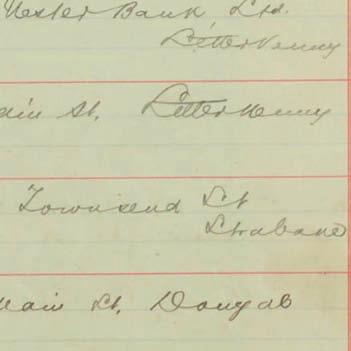 Ulster Bank Ltd.
Letterkenny
Main St. Letterkenny
Townsend St
Strabane
Main St. Donegal